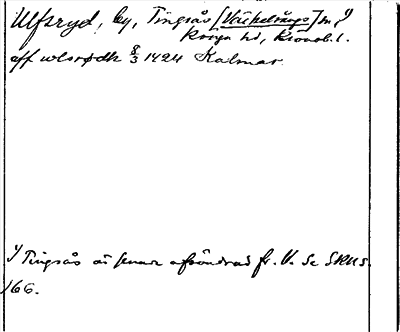 Ulfsryd, by, Tingsås [Väckelsångs] sn, 1)
Konga hd, Kronob. l.
aff wlsrødh 8/3 1424 Kalmar
1) Tingsås är senare afsöndrad fr. V. Se SRU s.
166.